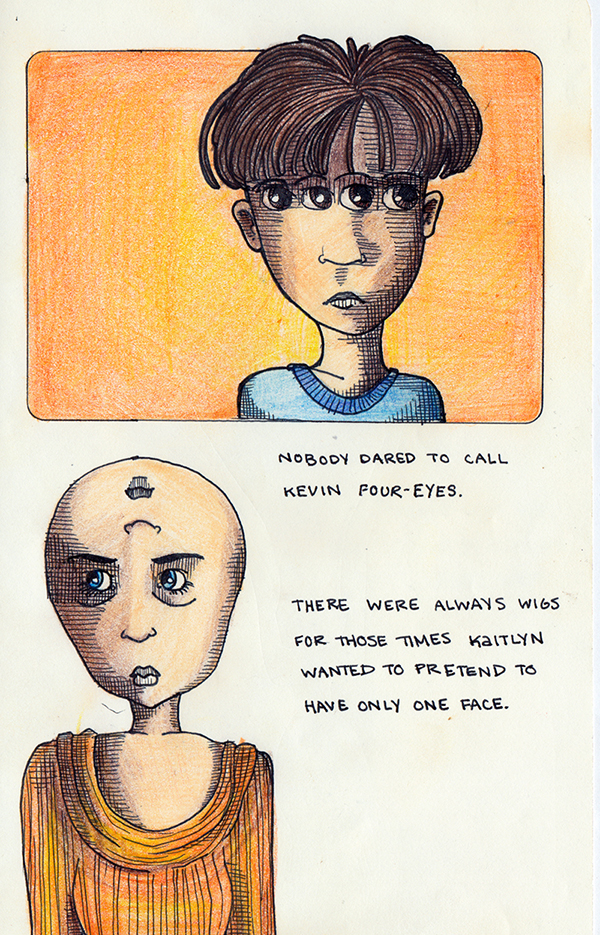 NOBODY DARED TO CALL
KEVIN FOUR-EYES.
THERE WERE ALWAYS WIGS
FOR THOSE TIMES KAITLYN
WANTED TO PRETEND TO
HAVE ONLY ONE FACE.